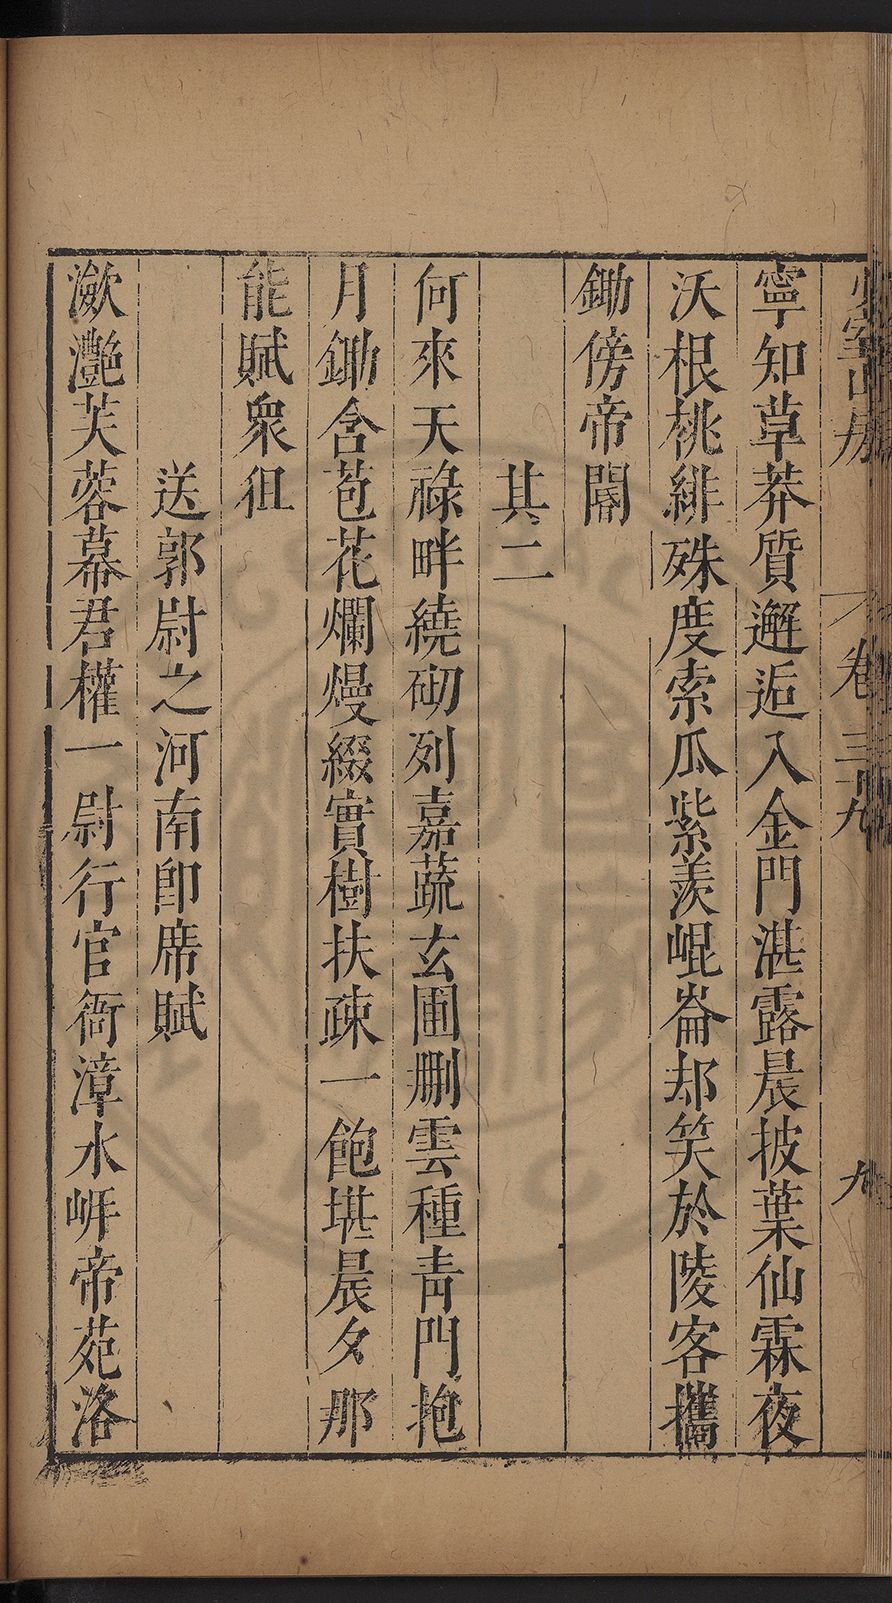 少室山房 卷三九 九
寧知草莽質邂逅入金門湛露晨披葉仙霖夜
沃根桃緋殊度索瓜紫羨崐崙却笑於陵客攜
鋤傍帝閽
其二
何來天祿畔繞砌列嘉蔬玄圃删雲種青門抱
月鋤含苞花爛熳綴實樹扶疎一飽堪晨夕那
能賦衆狙
送郭尉之河南即席賦
瀲灔芙蓉幕君權一尉行官衙漳水㟁帝苑洛